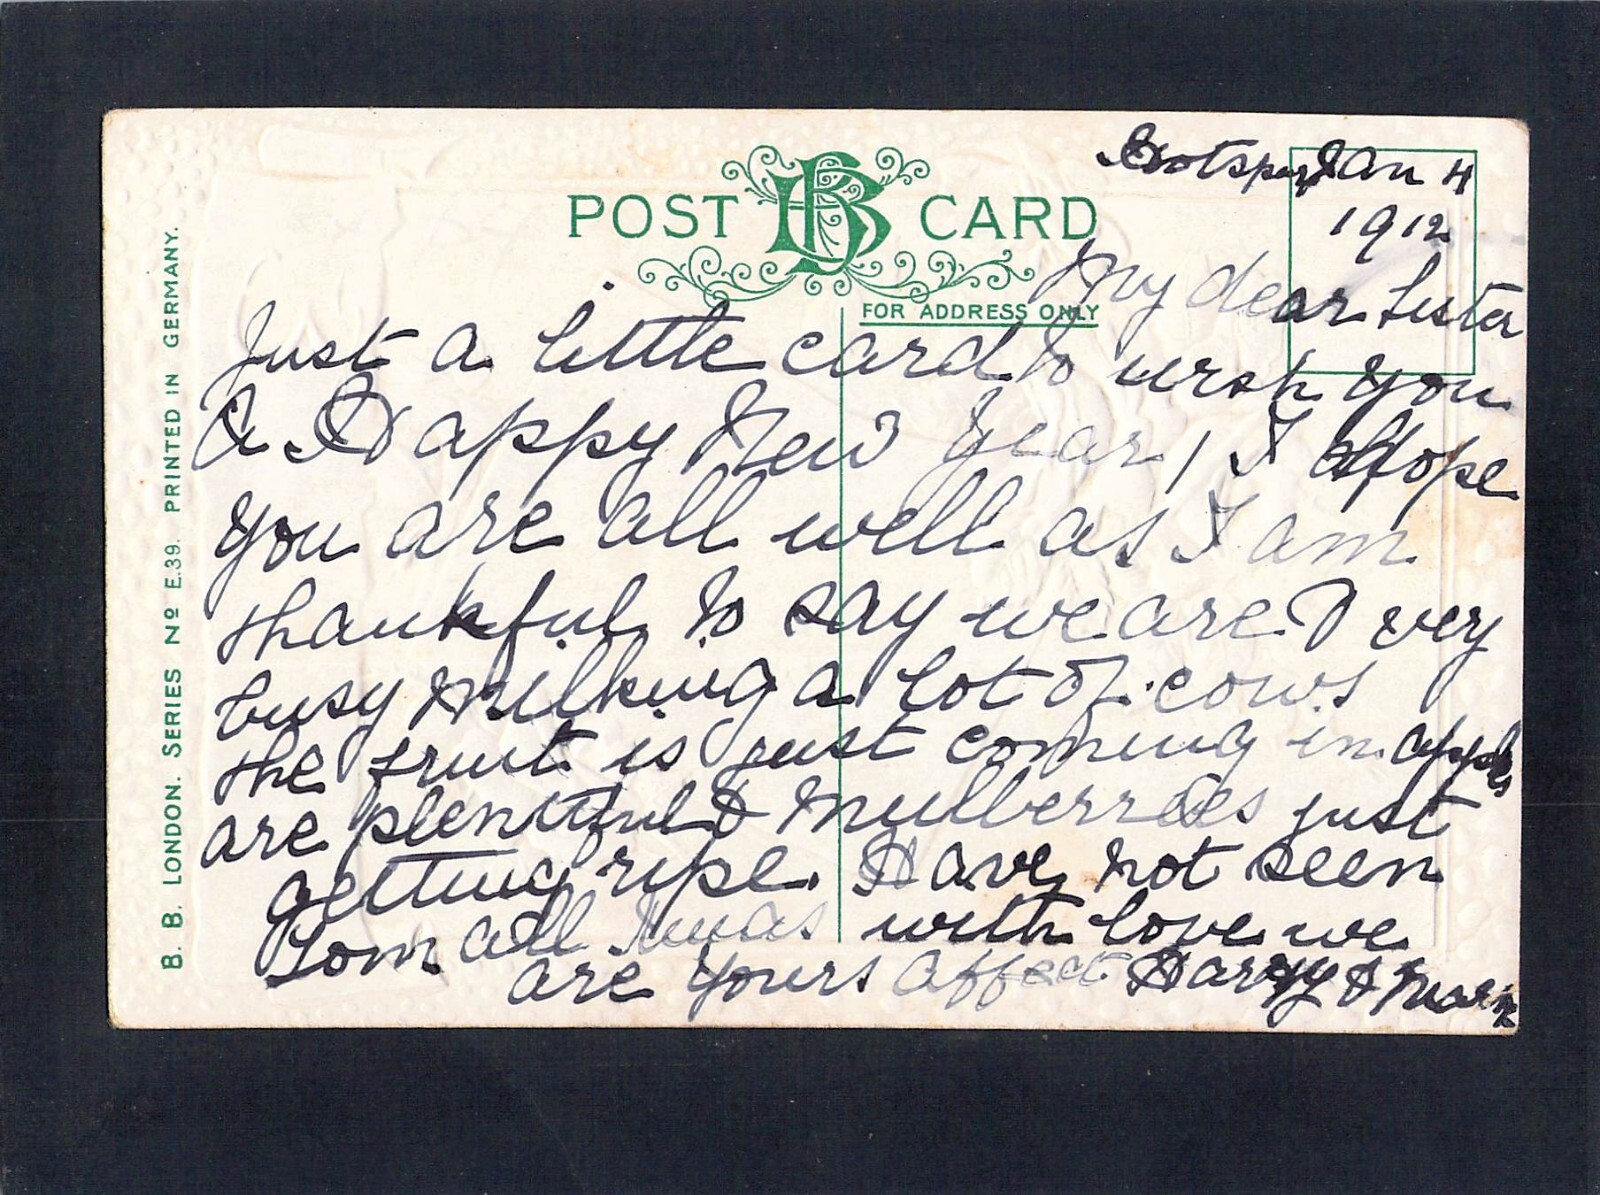 Hotspur Jan 4
1912
POST BB CARD
FOR ADDRESS ONLY
My dear Sister
Just a little card to wish you
A Happy New Year, I Hope
you are all well as I am
thankful to say we are & very
busy Milking a lot of cows
the fruit is just coming in apples
are plentiful & Mulberries just
getting ripe. Have not seen
Tom all Xmas with love we
are yours affect Harry &
B. B. LONDON. SERIES Nº E.39. PRINTED IN GERMANY.